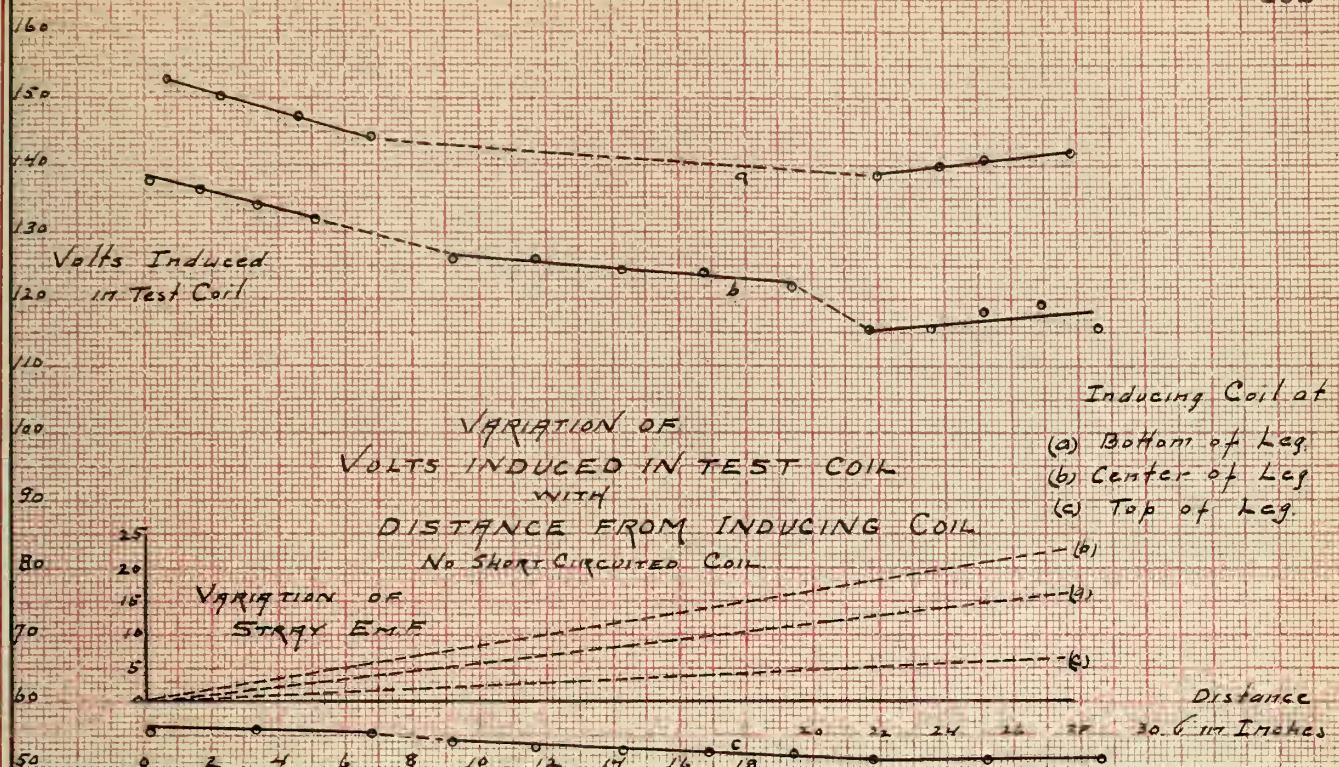 160
150
140
130
Volts Induced
in Test Coil
120
110
100
90
80
70
60
50
a
b
c
Inducing Coil at
(a) Bottom of Leg.
(b) Center of Leg
(c) Top of Leg.
VARIATION OF
VOLTS INDUCED IN TEST COIL
WITH
DISTANCE FROM INDUCING COIL
NO SHORT CIRCUITED COIL
VARIATION OF
STRAY E.M.F.
25
20
15
10
5
0
(b)
(a)
(c)
Distance
in Inches
0 2 4 6 8 10 12 14 16 18 20 22 24 26 28 30